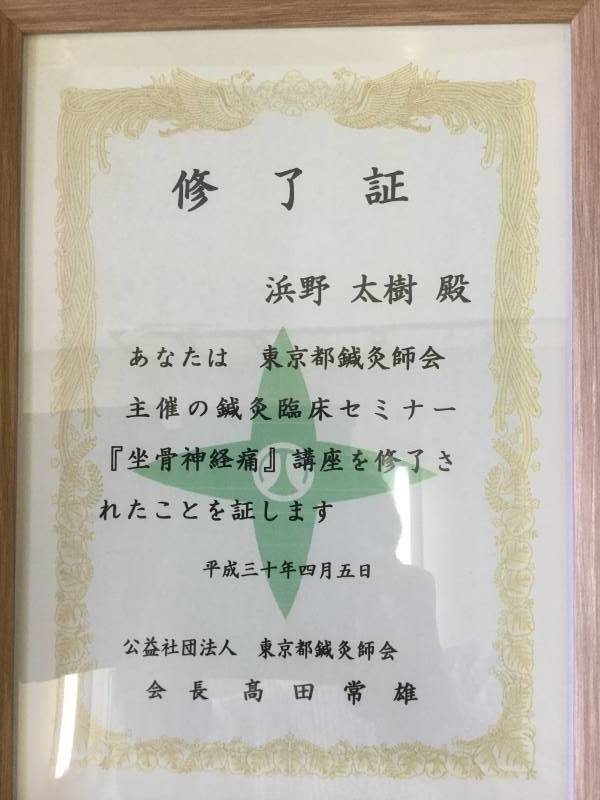 修了証
浜野 太樹 殿
あなたは 東京都鍼灸師会
主催の鍼灸臨床セミナー
『坐骨神経痛』講座を修了さ
れたことを証します
平成三十年四月五日
公益社団法人 東京都鍼灸師会
会長 髙田常雄